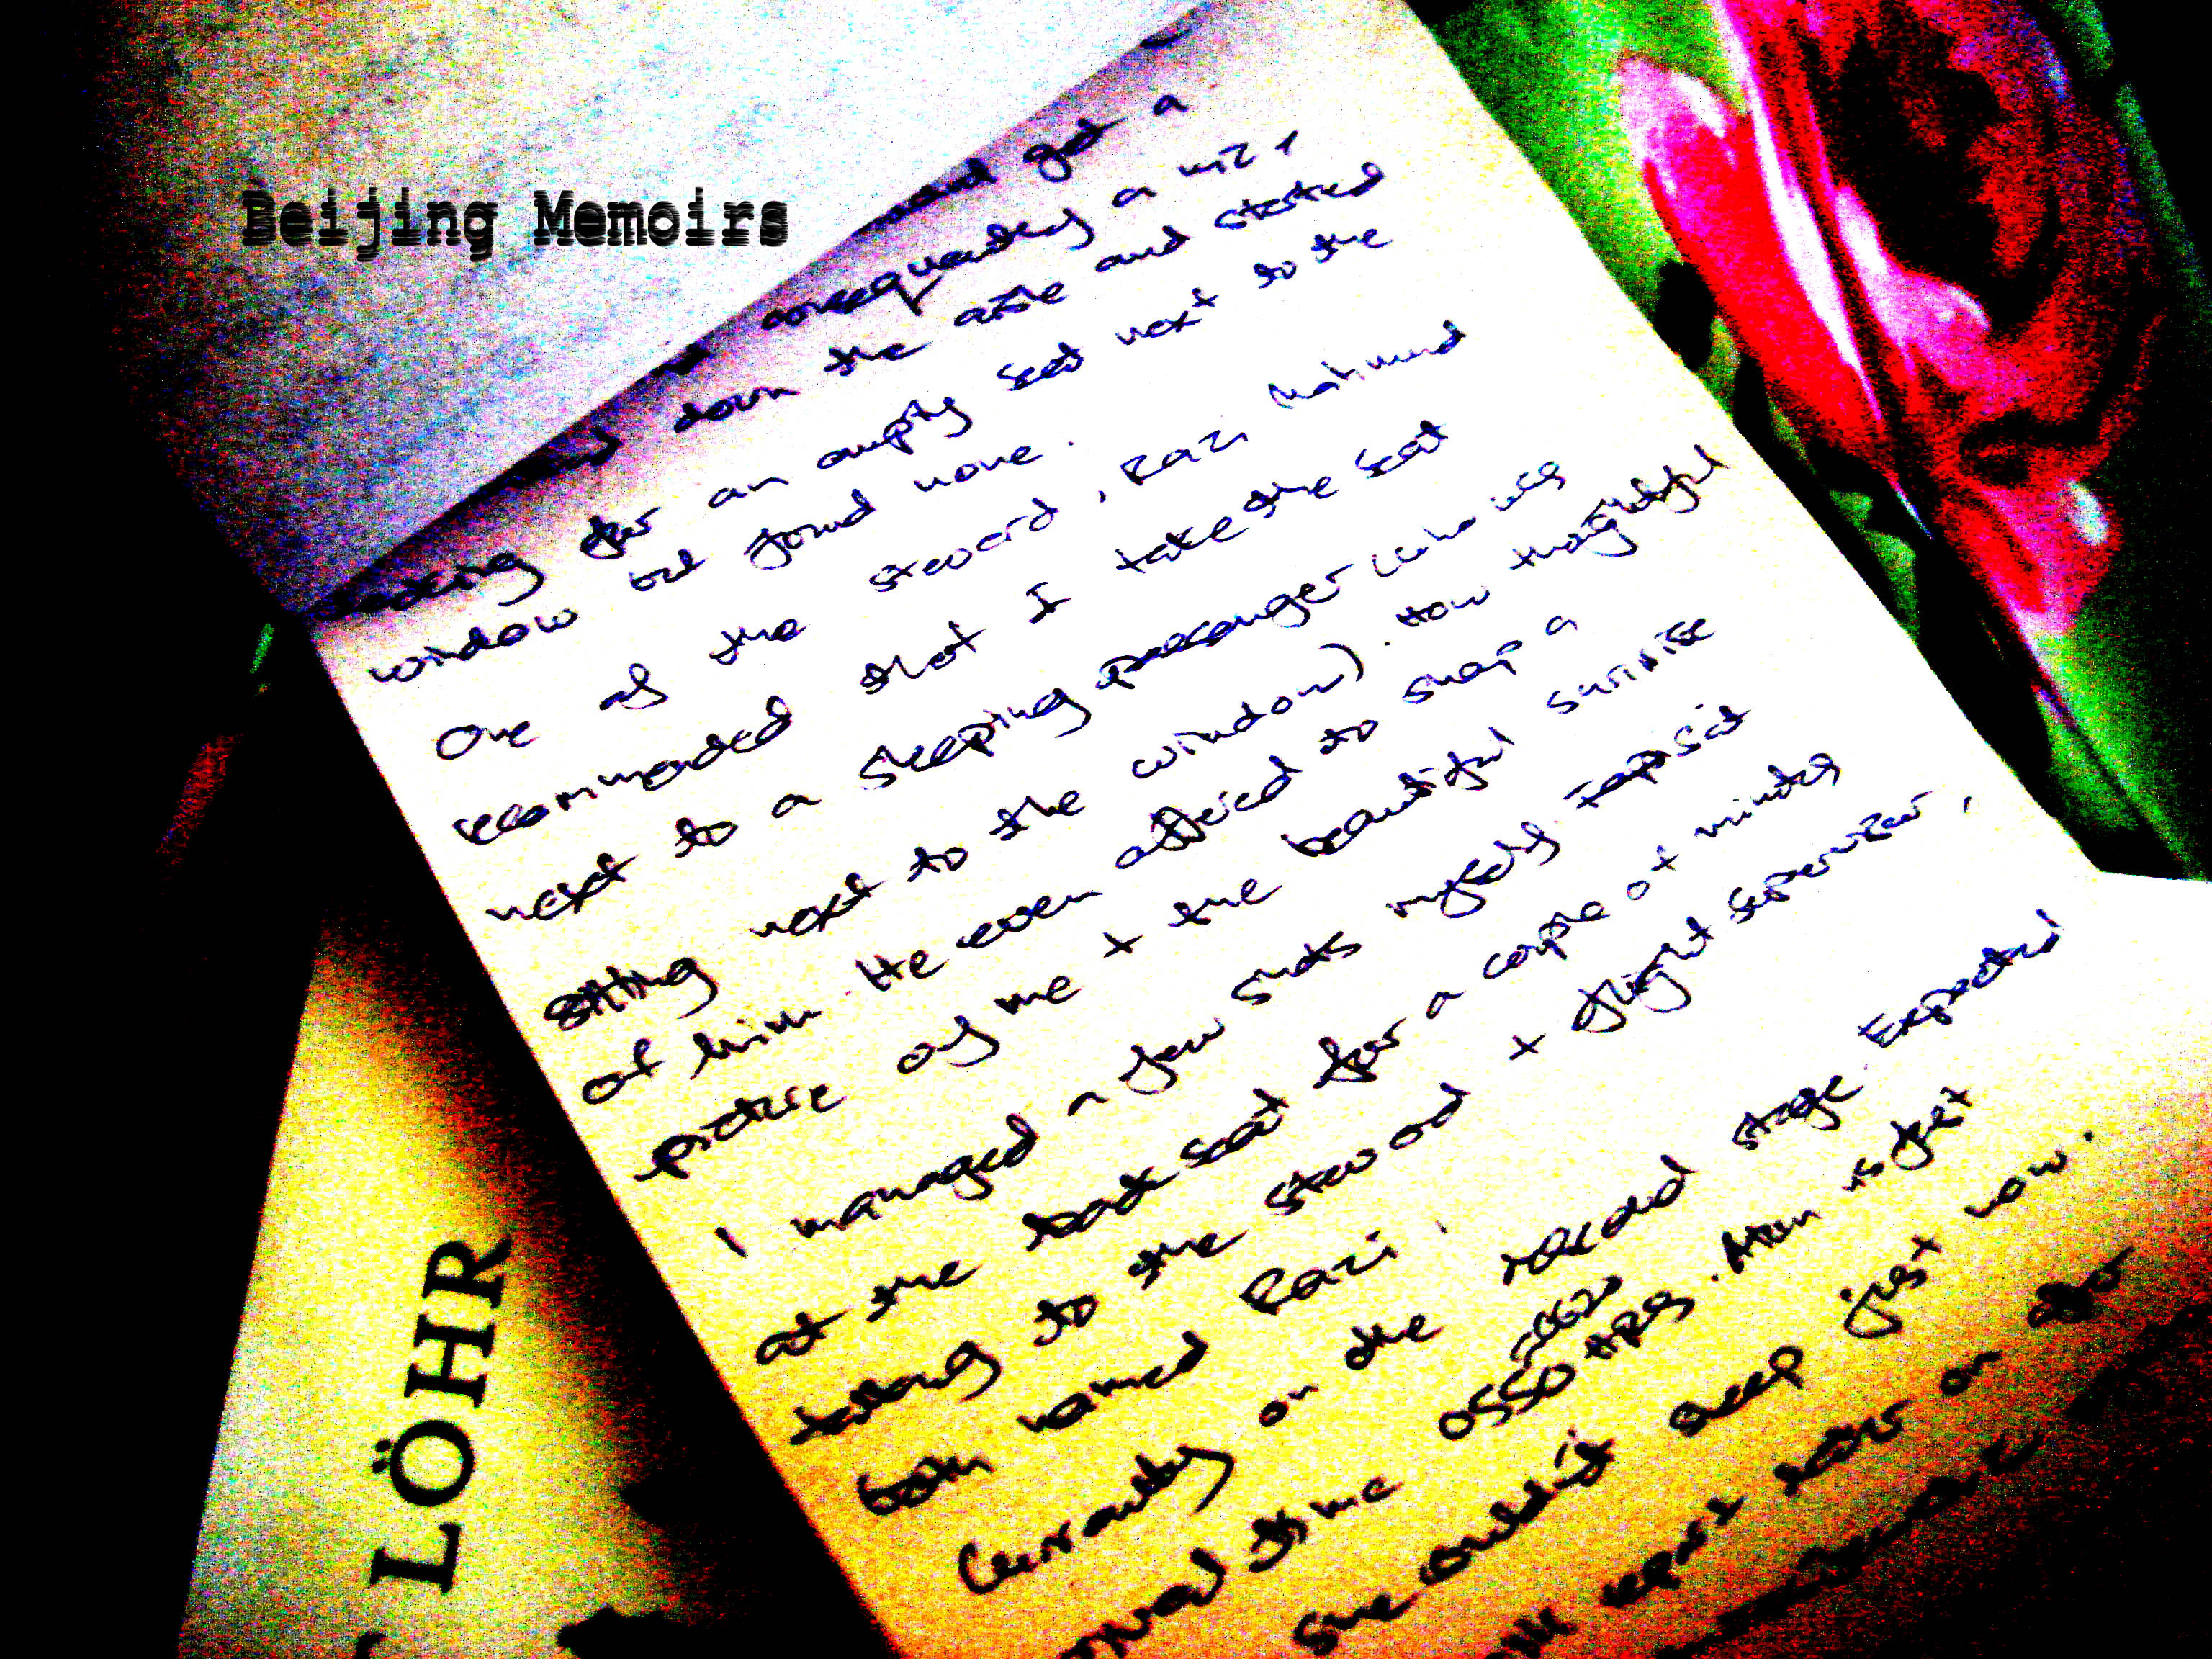 Beijing Memoirs
and get a
consequently a
down the aisle and started
looking for an empty seat next to the
window but found none.
One of the steward, Razi Mahmud
recommended that I take the seat
next to a sleeping passenger (who was
sitting next to the window). How thoughtful
of him. He even offered to snap a
picture of me + the beautiful sunrise
I managed a few shots myself. I
at the back seat for a couple of minutes
talking to the steward + flight supervisor,
both named Razi.
Currently on the stage. Expected
arrival time 0550 HRS.
she couldn't sleep just now.
or
LÖHR